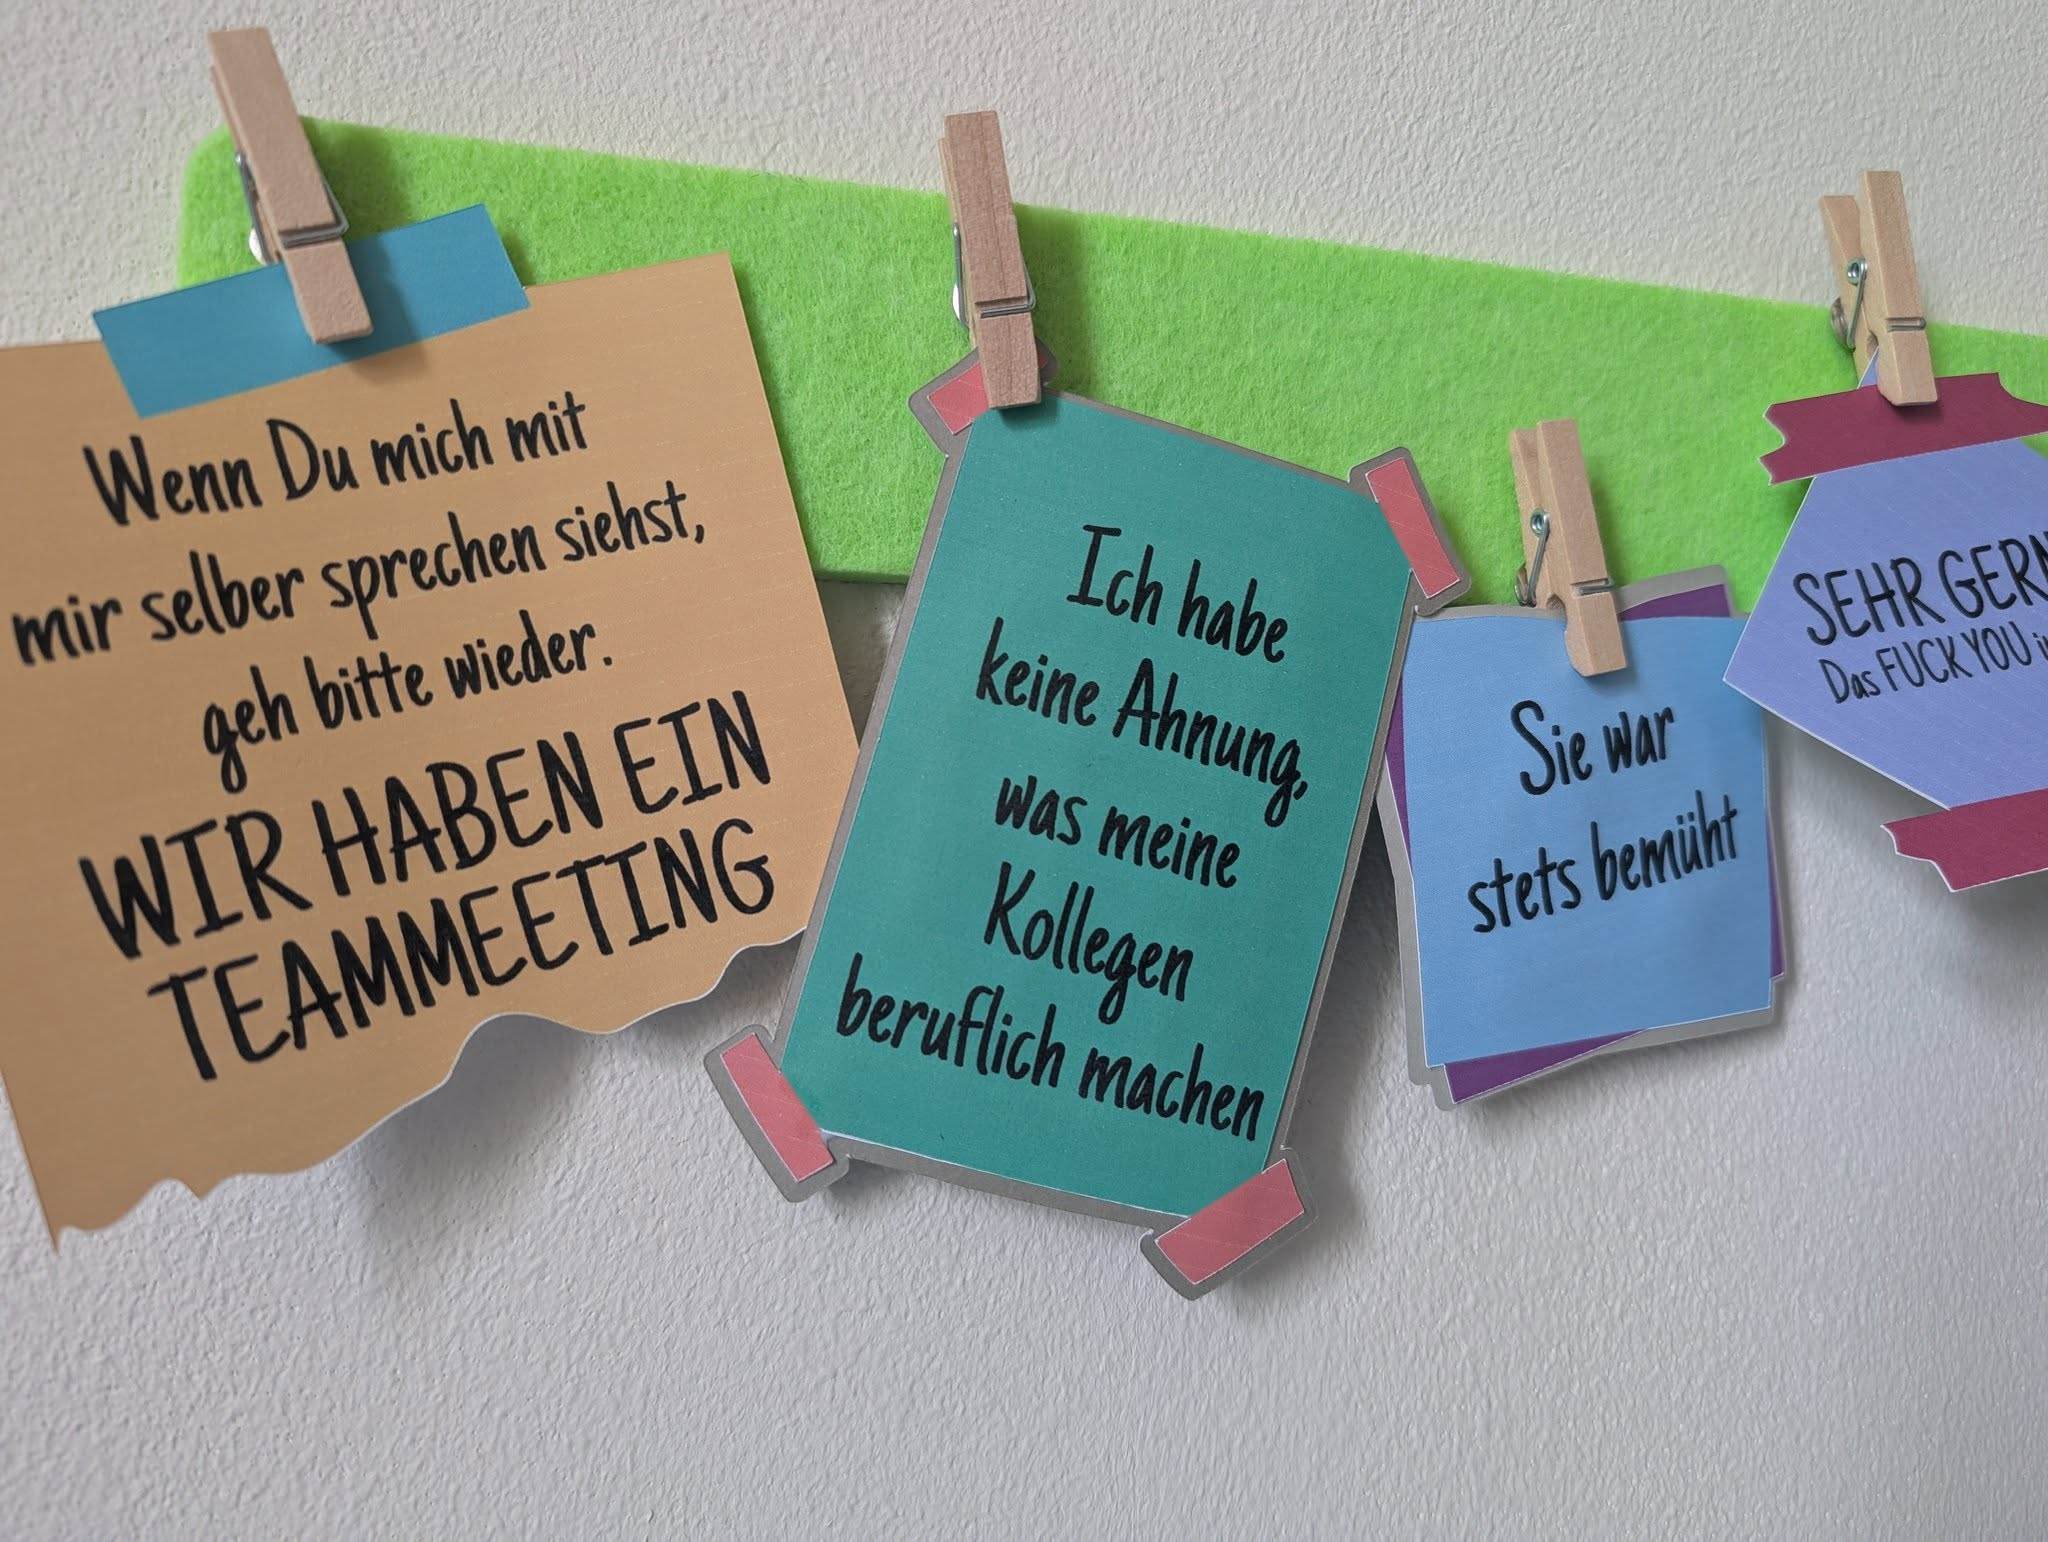 Wenn Du mich mit
mir selber sprechen siehst,
geh bitte wieder.
WIR HABEN EIN
TEAMMEETING
Ich habe
keine Ahnung,
was meine
Kollegen
beruflich machen
Sie war
stets bemüht
SEHR
Das FUCK YOU